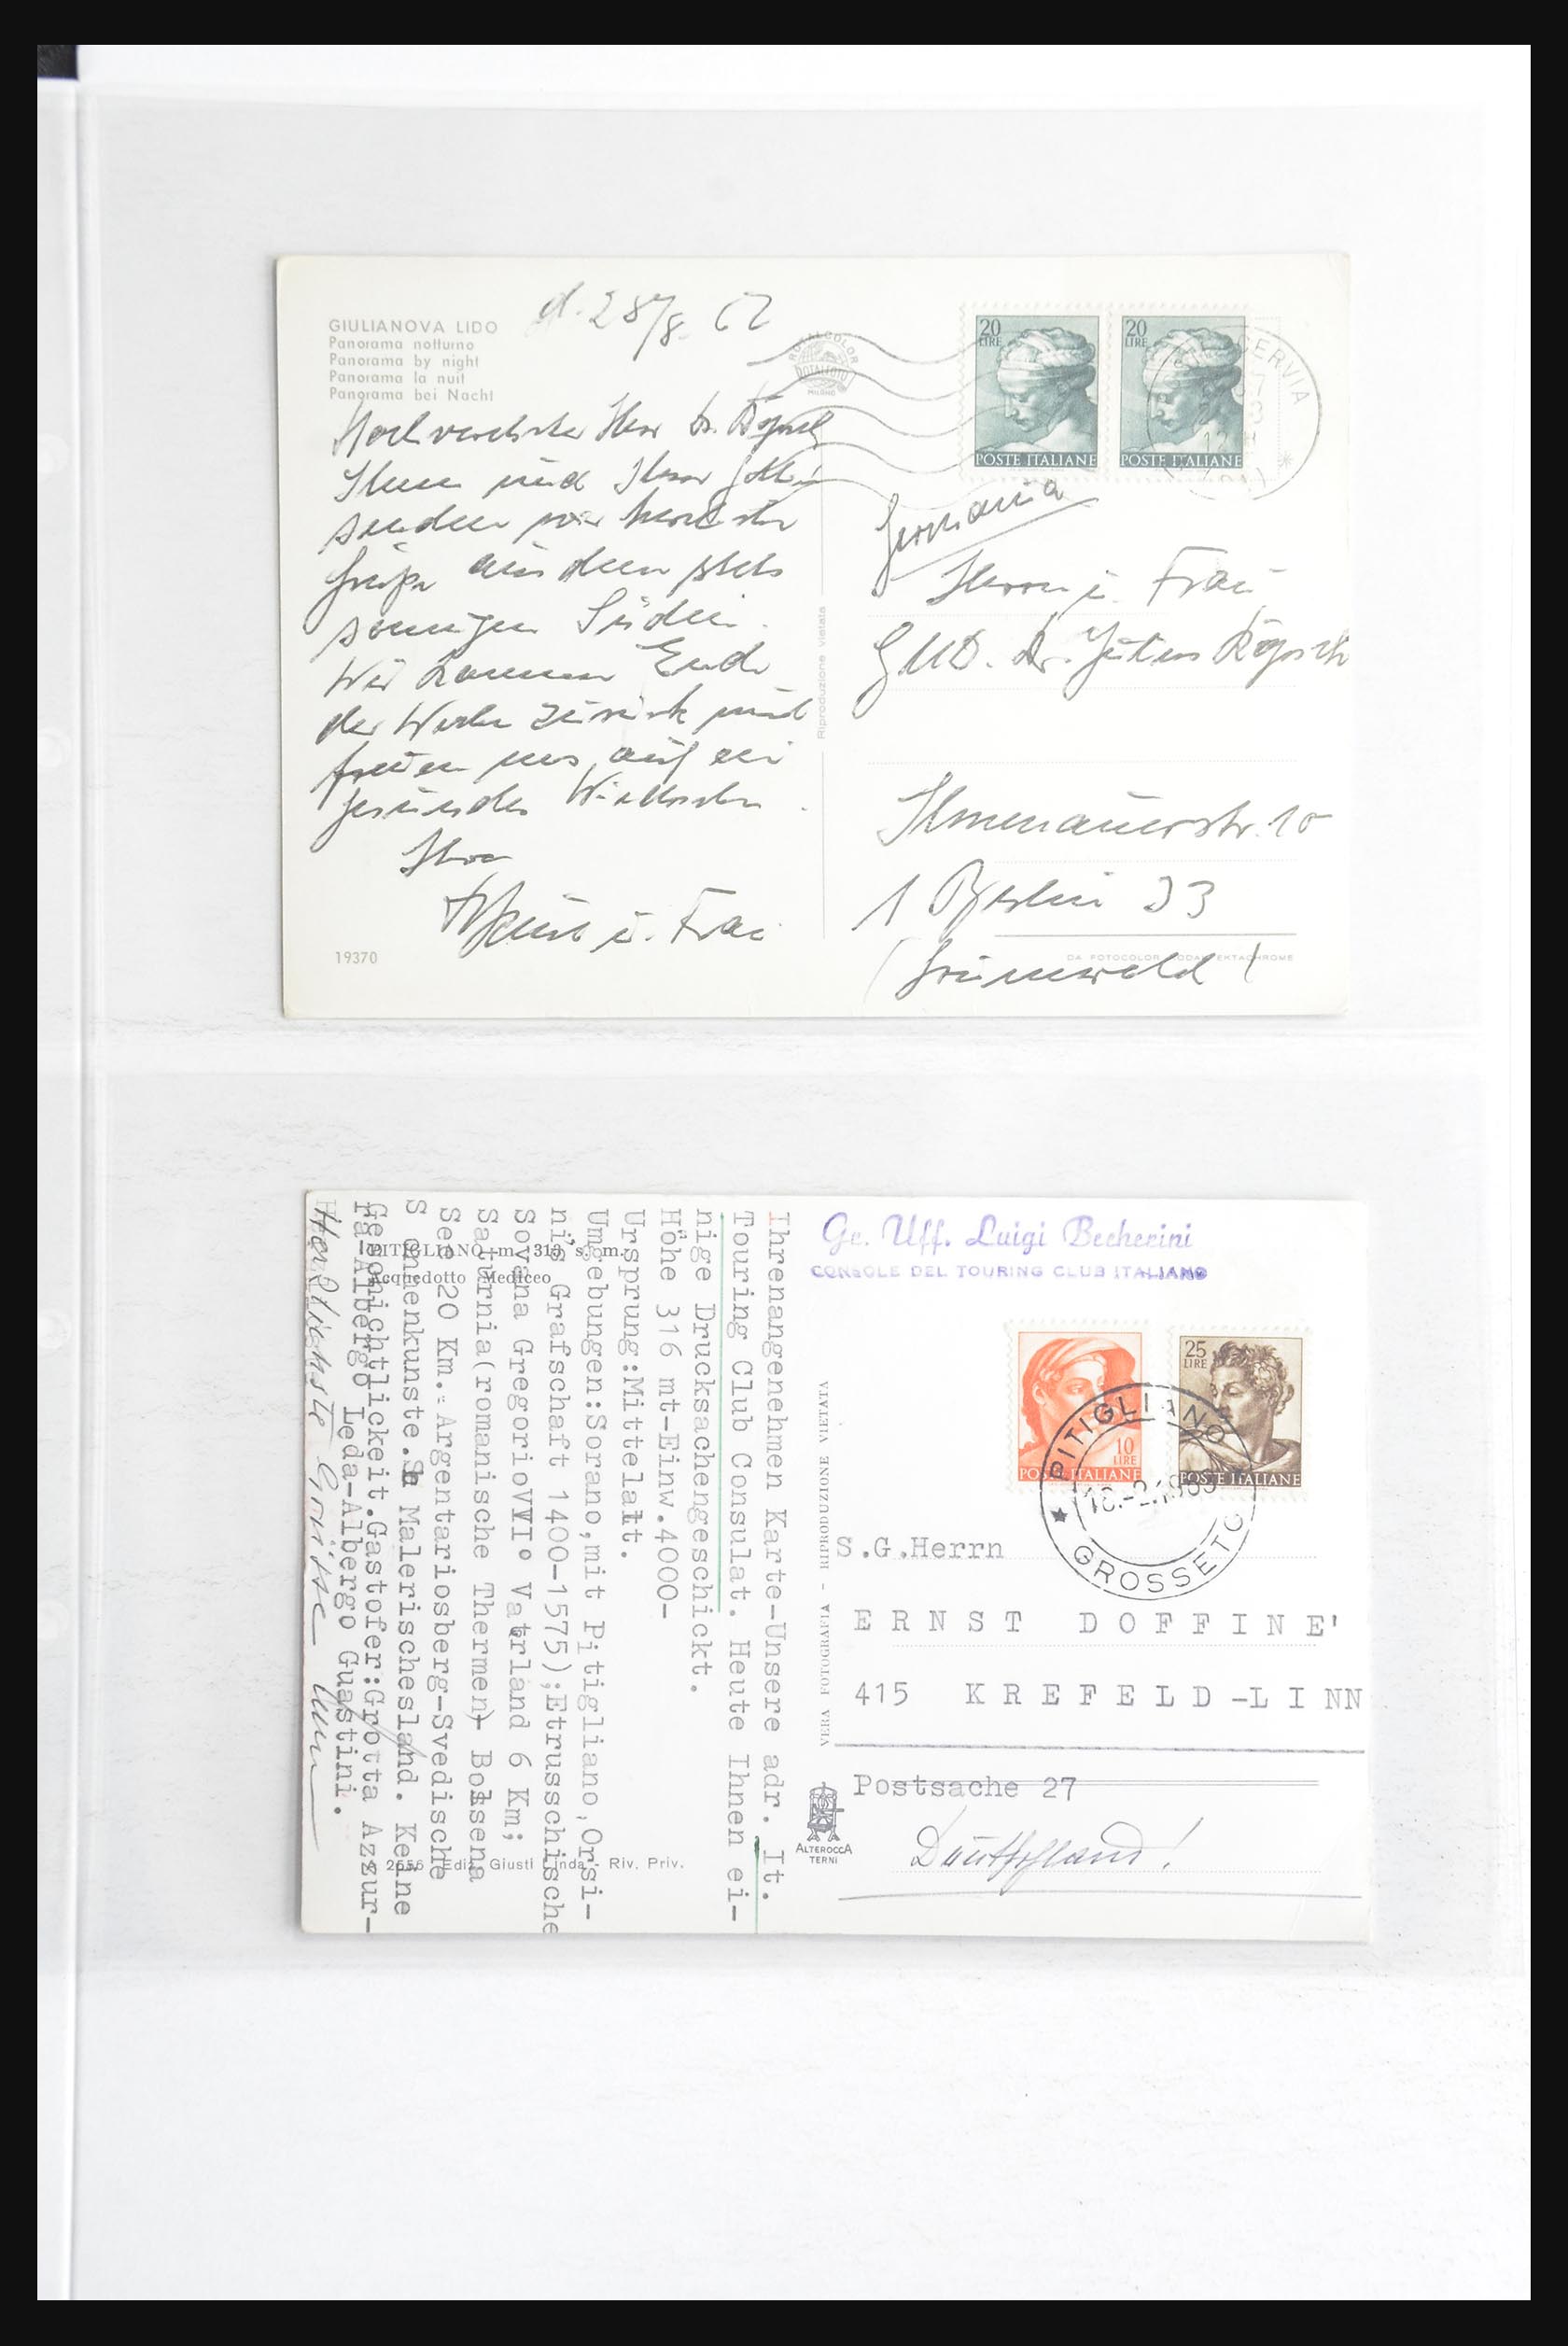 GIULIANOVA LIDO
Panorama notturno
Panorama by night
Panorama la nuit
Panorama bei Nacht
d. 28/8. 67
Hochverehrter Herr Dr.
Ihnen und Ihrer Gattin
senden wir herzliche
Grüße aus dem stets
sonnigen Süden.
Wir kommen Ende
der Woche zurück und
freuen uns auf ein
gesundes Wiedersehen.
Ihre
u. Frau
19370
ROTALCOLOR
ROTALFOTO
MILANO
20
LIRE
POSTE ITALIANE
20
LIRE
POSTE ITALIANE
CERVIA
Riproduzione vietata
Germania
Herrn u. Frau
Dr.
Ilmenauerstr. 10
1 Berlin 33
(Grunewald)
DA FOTOCOLOR KODAK EKTACHROME
Gr. Uff. Luigi Becherini
CONSOLE DEL TOURING CLUB ITALIANO
10
LIRE
POSTE ITALIANE
25
LIRE
POSTE ITALIANE
PITIGLIANO
GROSSETO
S.G.Herrn
ERNST DOFFINE'
415 KREFELD-LINN
Postsache 27
Deutschland!
VERA FOTOGRAFIA - RIPRODUZIONE VIETATA
ALTEROCCA
TERNI
PITIGLIANO m. 313 s. m.
Acquedotto Mediceo
2656 Ediz. Giusti Linda - Riv. Priv.
Ihrenangenehmen Karte-Unsere adr. It.
Touring Club Consulat. Heute Ihnen ei-
nige Drucksachengeschickt.
Höhe 316 mt-Einw.4000-
Ursprung:Mittelalt.
Umgebungen:Sorano,mit Pitigliano,Orsi-
nis Grafschaft 1400-1575);Etrusschische
Sovana GregorioVII° Vatrland 6 Km;
Saturnia(romanische Thermen) Bolsena
See 20 Km.-Argentariosberg-Svedische
S onnenkunste.Sh Malerischesland. Keine
Gemonichtlickeit.Gastofer:Grotta Azzur-
ra-Albergo Leda-Albergo Guastini.
Herzlichste Grüsse